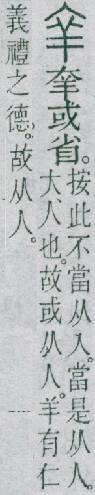 𦍒羍或省。
按此不當从入。當是从人。
大、人也。故或从人。羊有仁
義禮之德。故从人。